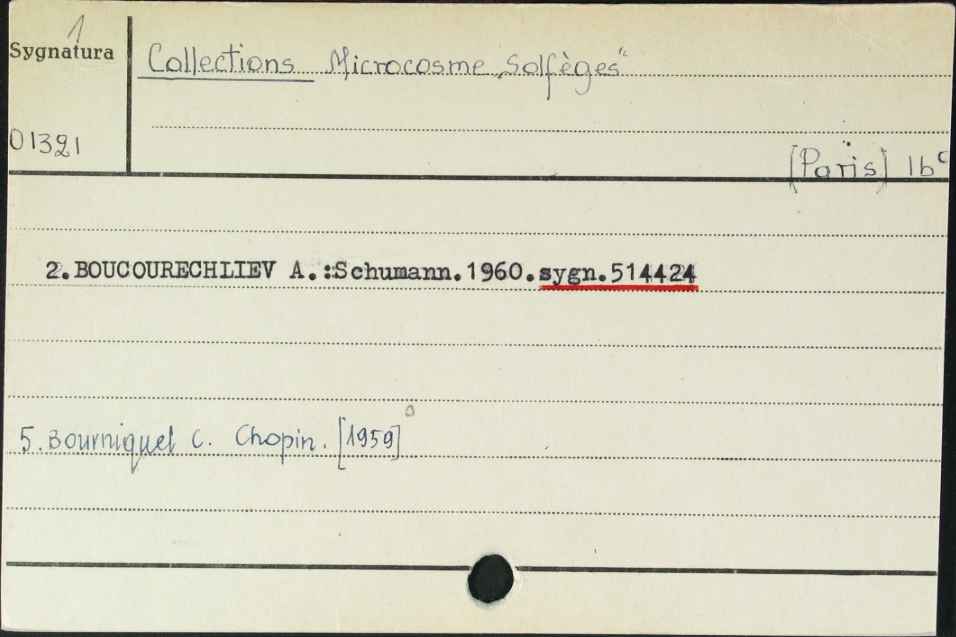 1
Sygnatura
Collections Microcosme „Solfèges"
01321
[Paris] 16°
2.BOUCOURECHLIEV A.:Schumann.1960.sygn.514424
5. Bourniquel C. Chopin. [1959]